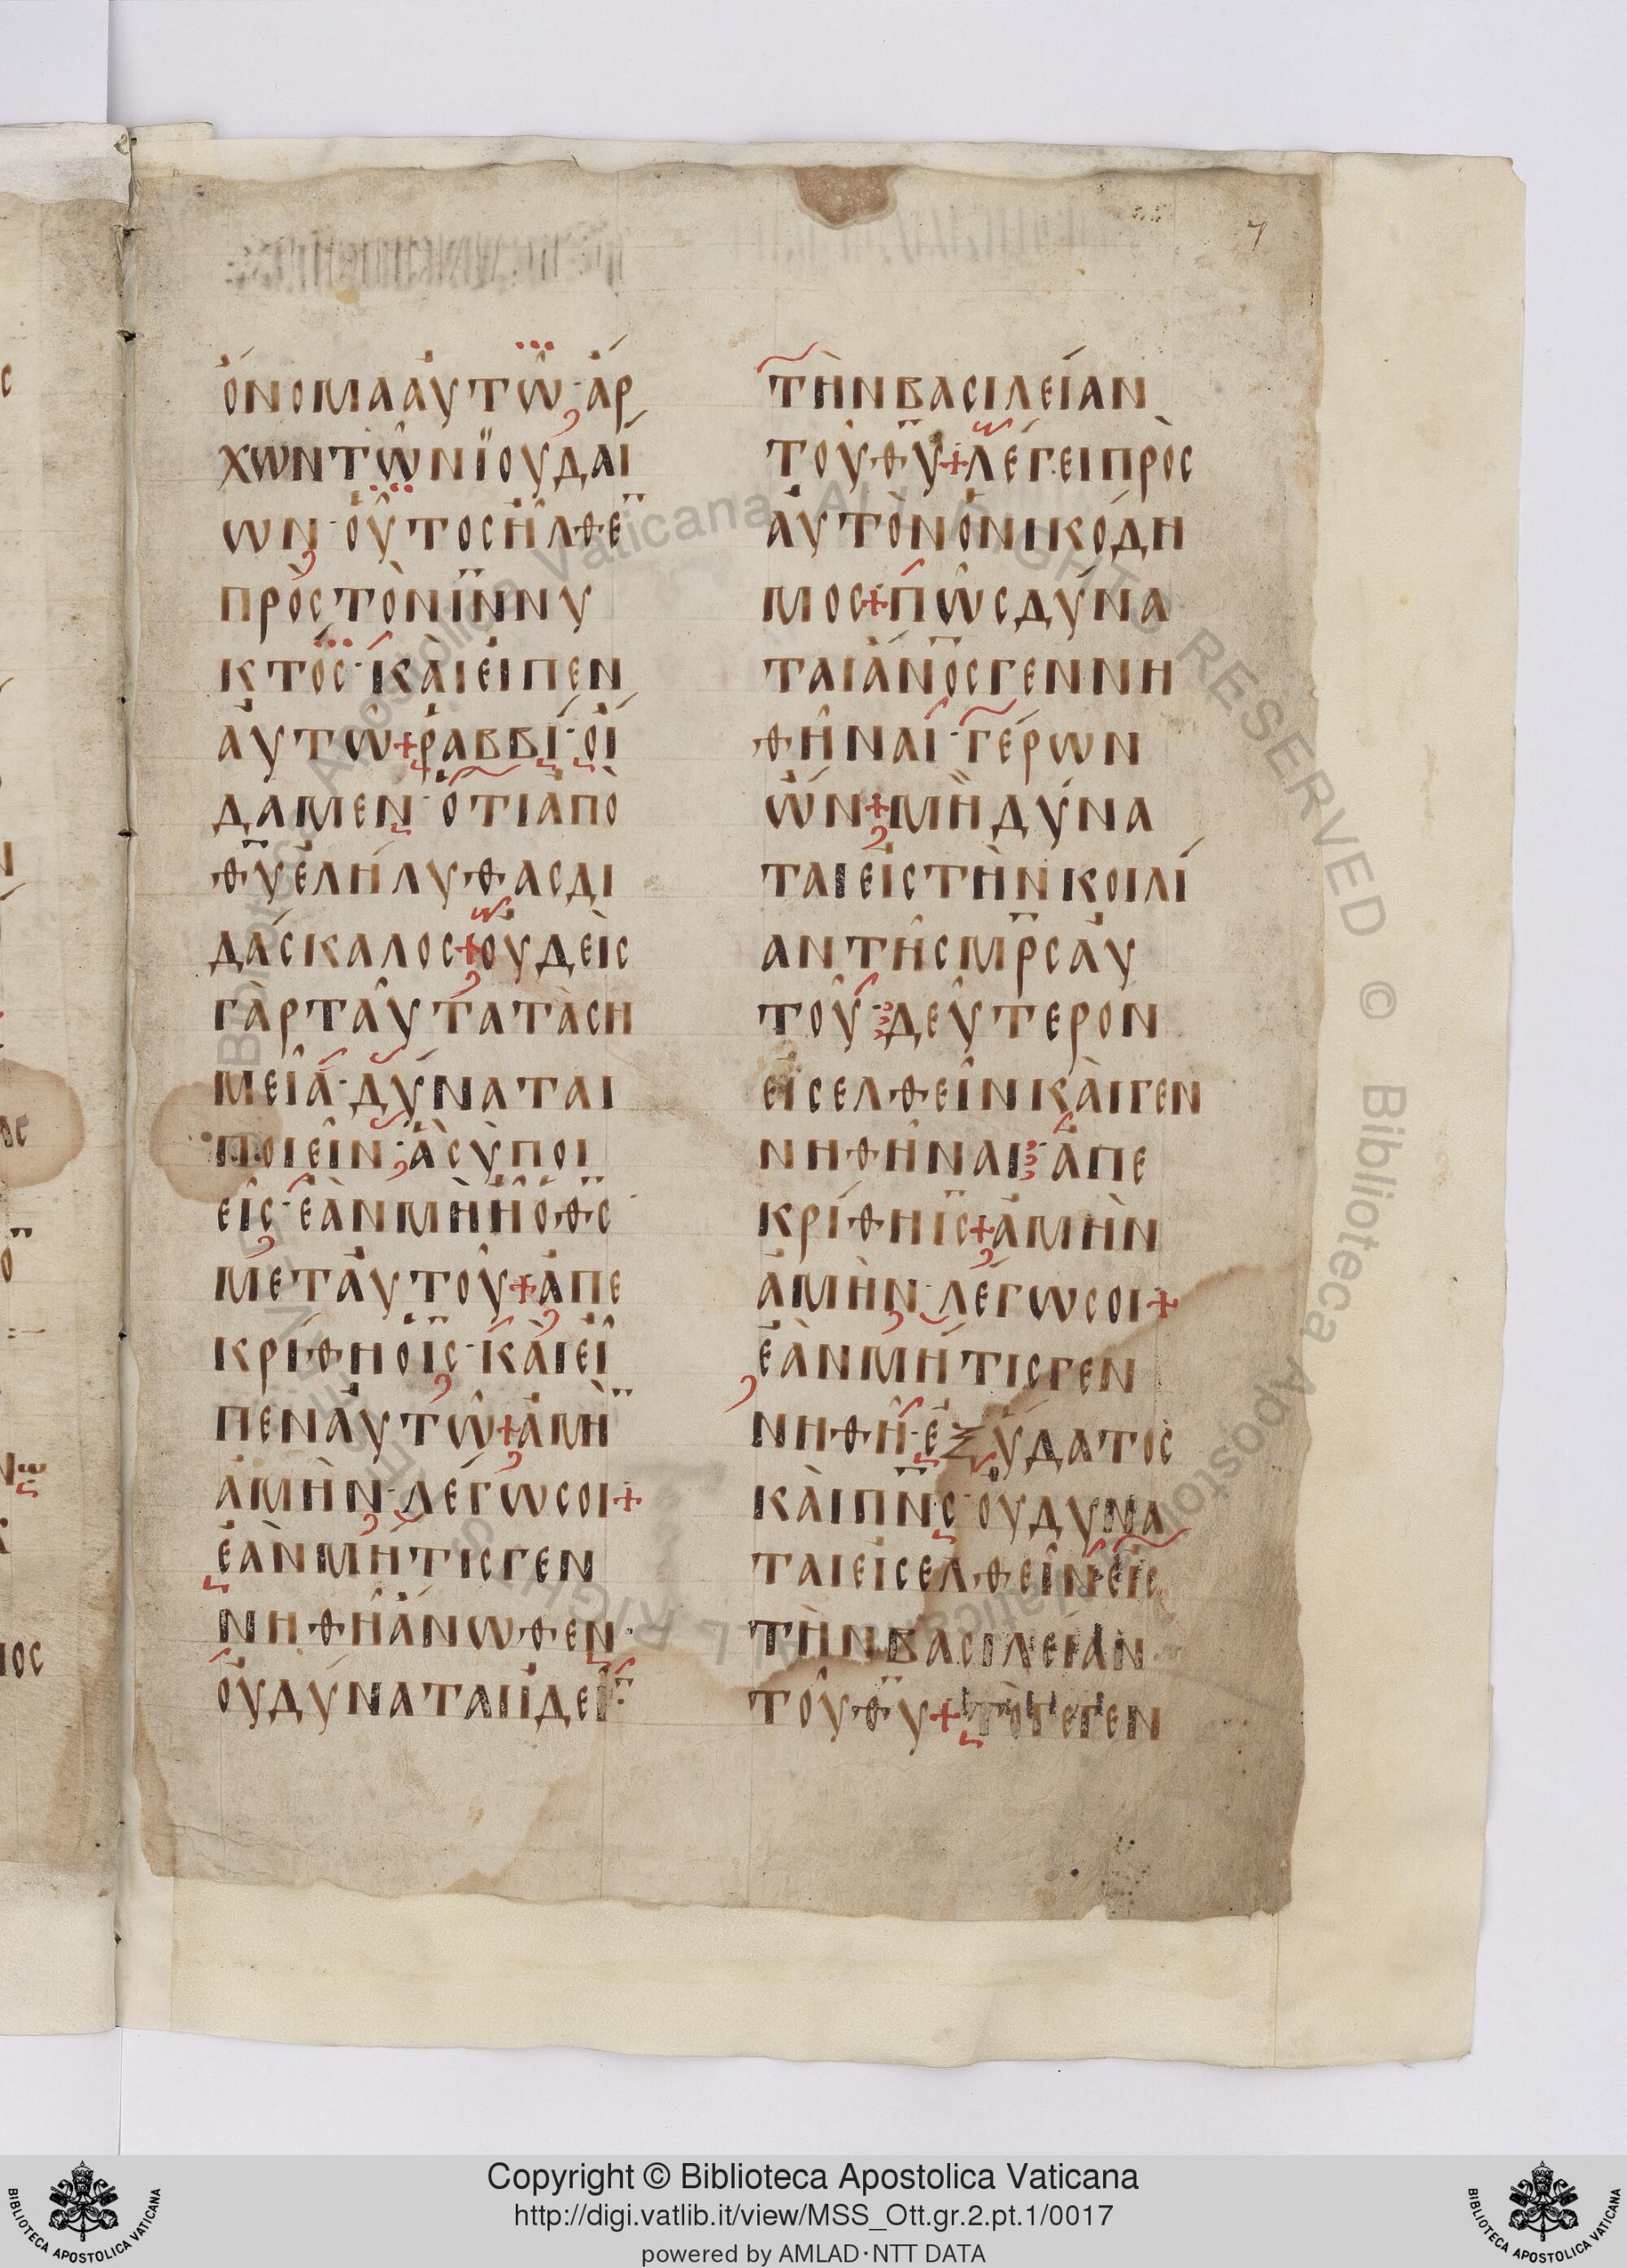 7
ὄνομα αὐτῶ· ἄρ
χων τῶν ϊουδαί
ων· οὗτος ἦλθε
πρὸς τὸν ῑν̄ νυ
κτὸς· καὶ εἶπεν
αὐτῶ + ραββί· οἴ
δαμεν· ὅτι ἀπὸ
θ̄ῡ ἐλήλυθας δι
δάσκαλος + οὐδεὶς
γὰρ ταῦτα τὰ ση
μεῖα· δύναται
ποιεῖν· ἃ σὺ ποι
εῖς· ἐὰν μὴ ἦ ὁ θ̄ς̄
μετ αὐτοῦ + ἀπε
κρίθη ὁ ῑς̄· καὶ εἶ
πεν αὐτῶ + ἀμὴ
ἀμὴν· λέγω σοι +
ἐὰν μή τις γεν
νηθῆ ἄνωθεν·
οὐ δύναται ἰδεῖ
τὴν βασιλείαν
τοῦ θ̄ῡ + λέγει πρὸς
αὐτὸν ὁ νικόδη
μος + πῶς δύνα
ται ἄν̄ο̄ς̄ γεννη
θῆναι· γέρων
ὤν + μὴ δύνα
ται εἰς τὴν κοιλί
αν τῆς μ̄ρ̄ς̄ αὐ
τοῦ· δεύτερον
εἰσελθεῖν καὶ γεν
νηθῆναι· ἀπε
κρίθη ῑς̄ + ἀμὴν
ἀμὴν· λέγω σοι +
ἐὰν μή τις γεν
νηθῆ· ἐξ ὕδατος
καὶ π̄ν̄ς̄· οὐ δύνα
ται εἰσελθεῖν εἰς
τὴν βασιλείαν
τοῦ θ̄ῡ + τὸ γεγεν
Copyright © Biblioteca Apostolica Vaticana
http://digi.vatlib.it/view/MSS_Ott.gr.2.pt.1/0017
powered by AMLAD·NTT DATA
BIBLIOTECA APOSTOLICA VATICANA
BIBLIOTECA APOSTOLICA VATICANA